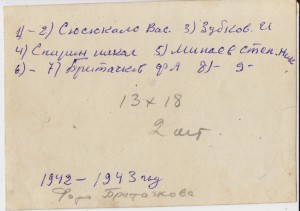 1)- 2) Сюсюкало Вас. 3) Зубков. И
4) Спицын михаил 5) Минаев Степ. Ник
6)- 7) Бритачков ф А 8)- 9-
13 x 18
2 шт.
1942-1943 год
Фото Бритачкова